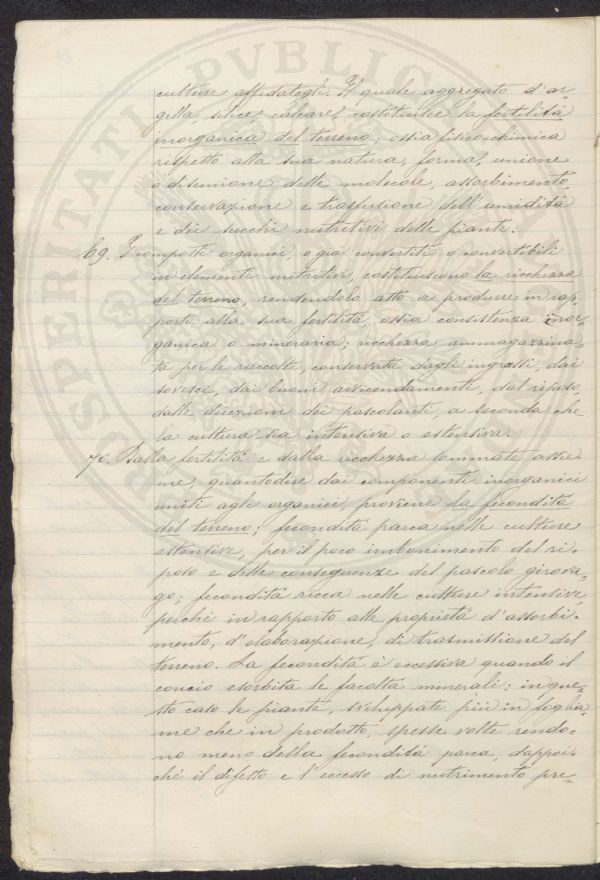 culture affidategli. Il quale aggregato d'ar-
gilla, silice, calcare, costituisce la fertilità
inorganica del terreno; ossia fisico-chimica
rispetto alla sua natura, forma, unione
o disunione delle molecole, assorbimento,
conservazione e trasfusione dell'umidità
e dei succhi nutritivi delle piante.
69. I composti organici, o già convertiti o convertibili
in elementi nutritivi, costituiscono la ricchezza
del terreno, rendendolo atto a produrre in rap-
porto alla sua fertilità, ossia consistenza inor-
ganica o mineraria; ricchezza ammagazzina-
ta per le raccolte, conservata dagli ingrassi, dai
sovesci, dai buoni avvicendamenti, dal riposo,
dalle deiezioni dei pascolanti, a seconda che
la cultura sia intensiva o estensiva.
70. Dalla fertilità e dalla ricchezza sommate assie-
me, quantodire dai componenti inorganici
uniti agli organici, proviene la fecondità
del terreno; fecondità parca nelle culture
estensive, per il poco imbonimento del ri-
poso e delle conseguenze del pascolo girova-
go; fecondità ricca nelle culture intensive,
perchè in rapporto alle proprietà d'assorbi-
mento, d'elaborazione, di trasmissione del
terreno. La fecondità è eccessiva quando il
concio esorbita le facoltà minerali: in que-
sto caso le piante, sviluppate più in foglia-
me che in prodotto, spesse volte rendo-
no meno della fecondità parca, dappoi-
chè il difetto e l'eccesso di nutrimento pre-
PROSPERITATI PVBLICAE